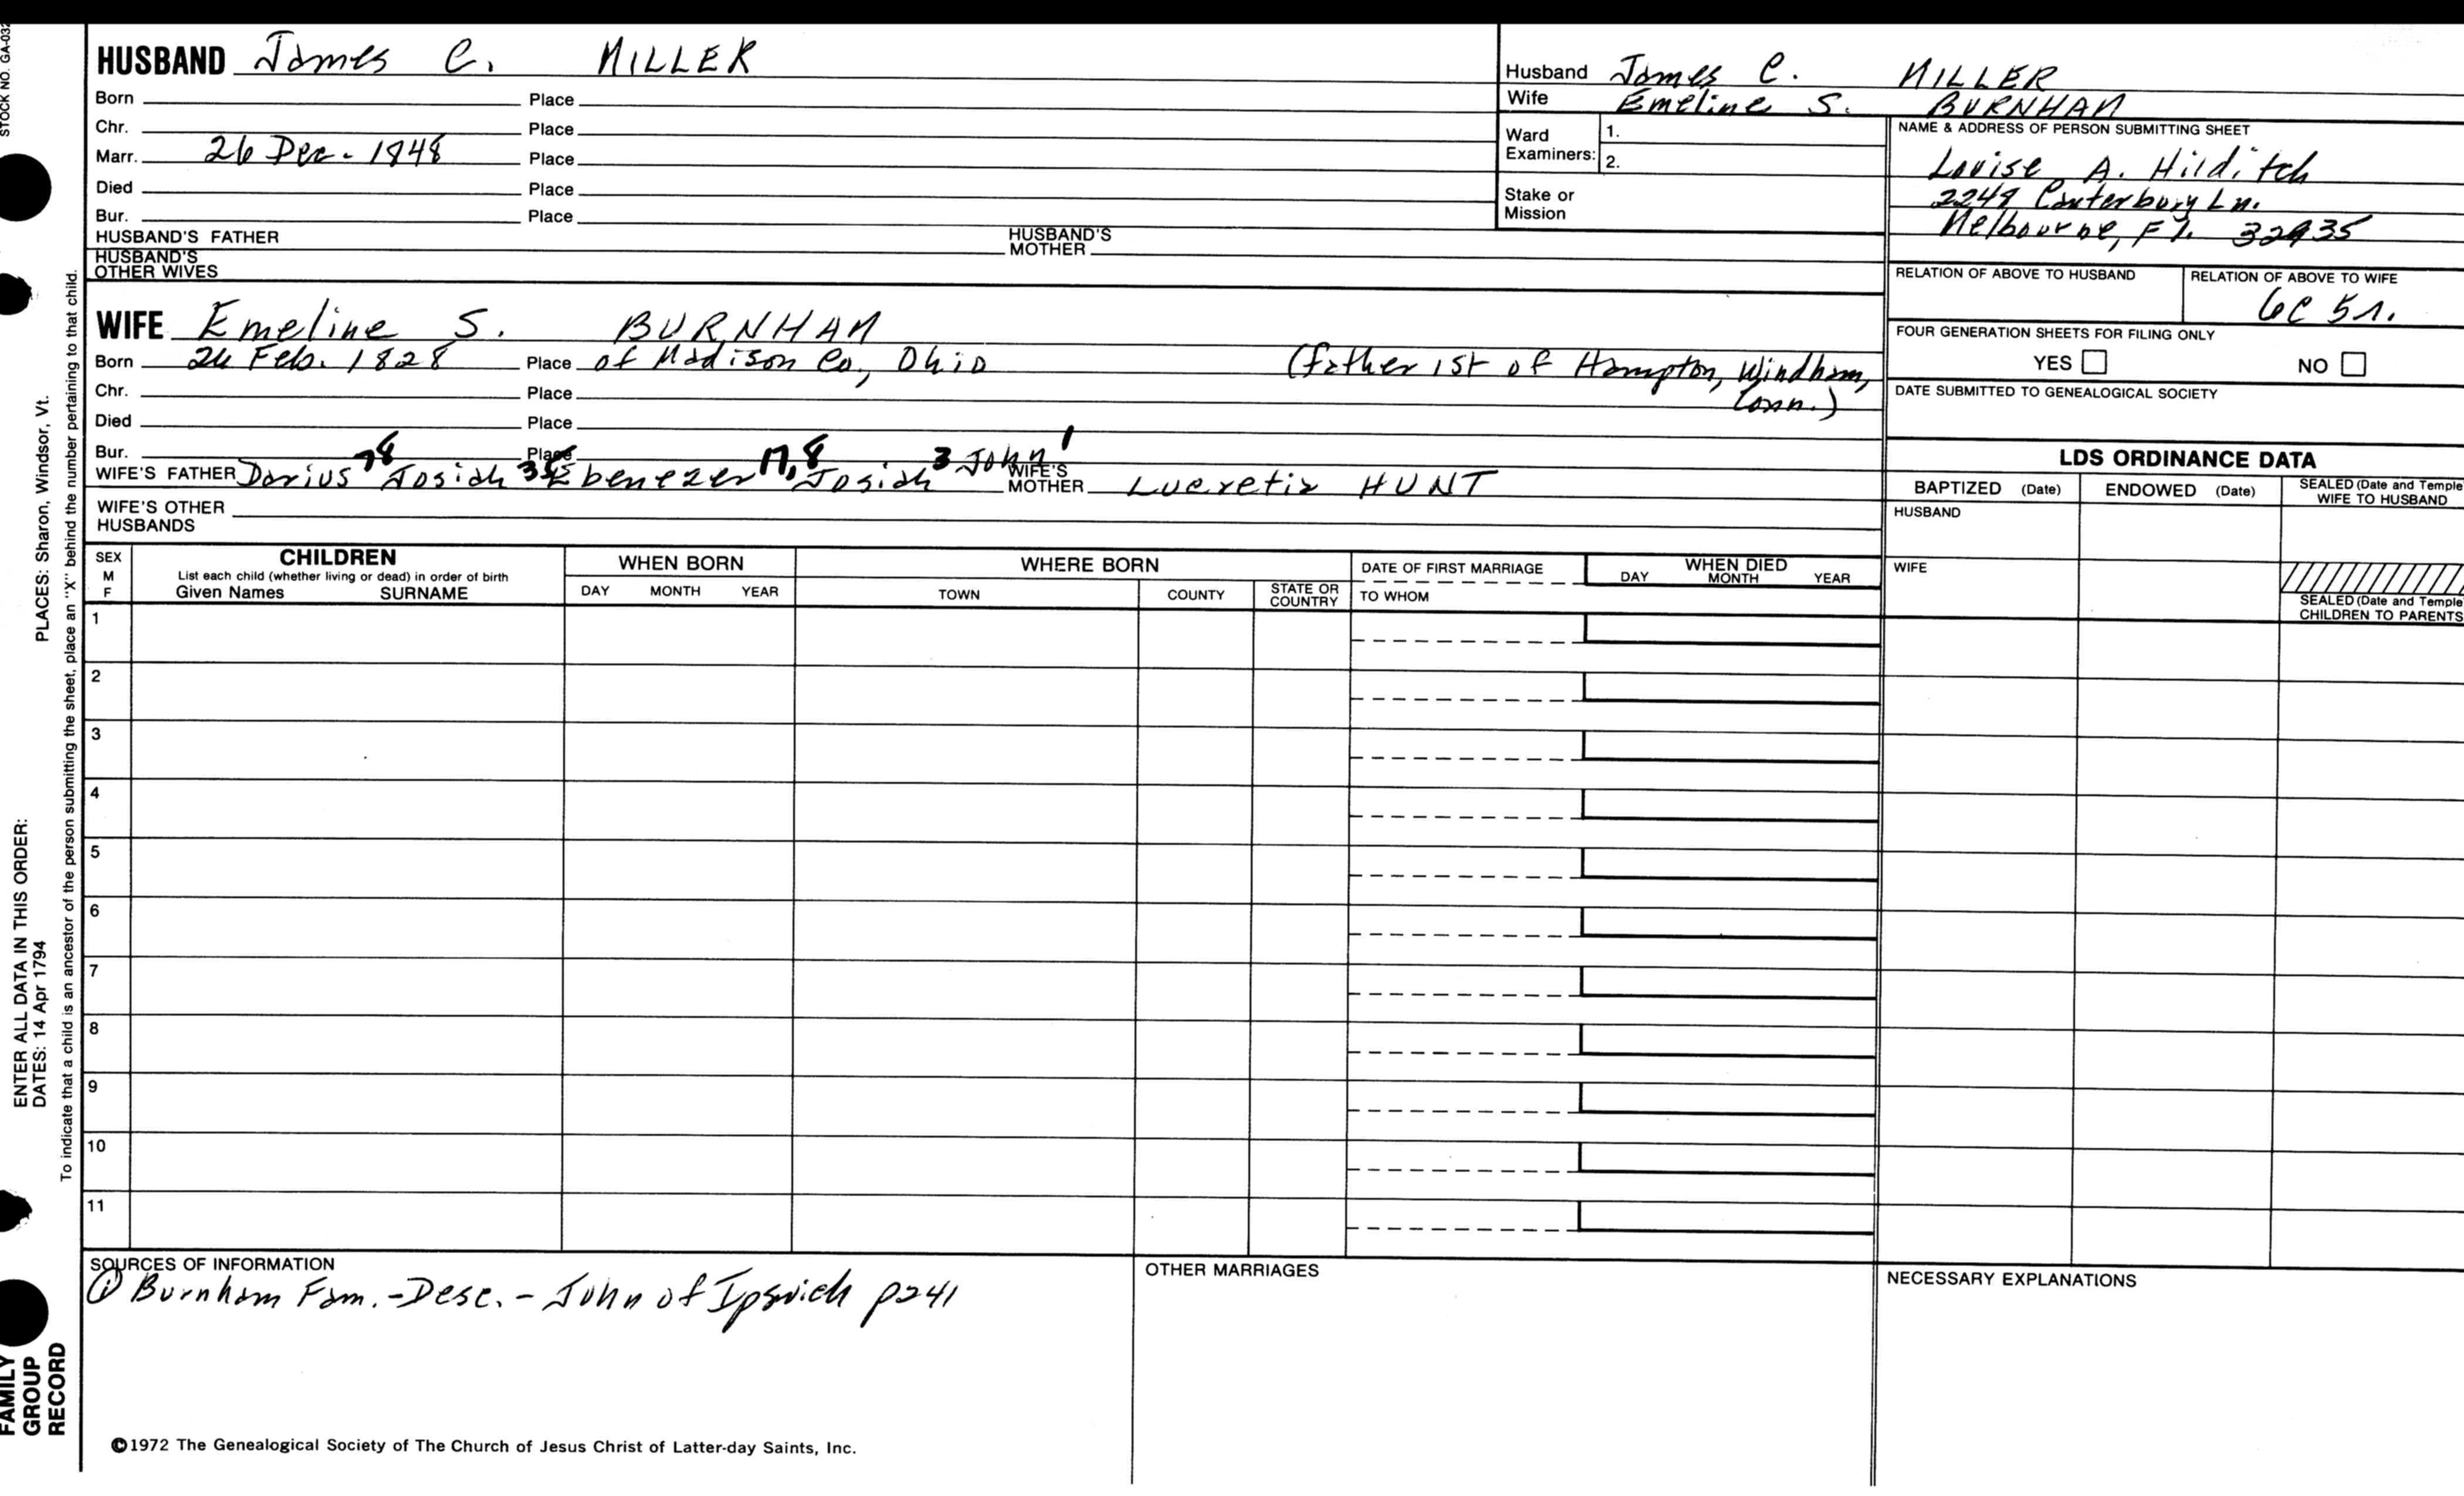 STOCK NO. GA-032
HUSBAND James C. MILLER
Born Place
Chr. Place
Marr. 26 Dec. 1848 Place
Died Place
Bur. Place
HUSBAND'S FATHER HUSBAND'S MOTHER
HUSBAND'S OTHER WIVES
Husband James C. MILLER
Wife Emeline S. BURNHAM
Ward Examiners: 1.
2.
Stake or Mission
NAME & ADDRESS OF PERSON SUBMITTING SHEET
Louise A. Hilditch
2249 Canterbury Ln.
Melbourne, Fl. 32935
RELATION OF ABOVE TO HUSBAND RELATION OF ABOVE TO WIFE
6C 5r.
FOUR GENERATION SHEETS FOR FILING ONLY
YES NO
DATE SUBMITTED TO GENEALOGICAL SOCIETY
WIFE Emeline S. BURNHAM
Born 26 Feb. 1828 Place of Madison Co., Ohio (father 1st of Hampton, Windham,
Conn.)
Chr. Place
Died Place
Bur. Place
WIFE'S FATHER Darius Josiah Ebenezer Josiah 3 John 1 WIFE'S MOTHER Lucretia HUNT
WIFE'S OTHER HUSBANDS
LDS ORDINANCE DATA
BAPTIZED (Date) ENDOWED (Date) SEALED (Date and Temple
WIFE TO HUSBAND
HUSBAND
WIFE
SEALED (Date and Temple
CHILDREN TO PARENTS
SEX
M
F
CHILDREN
List each child (whether living or dead) in order of birth
Given Names SURNAME
WHEN BORN
DAY MONTH YEAR
WHERE BORN
TOWN COUNTY STATE OR COUNTRY
DATE OF FIRST MARRIAGE
TO WHOM
WHEN DIED
DAY MONTH YEAR
1
2
3
4
5
6
7
8
9
10
11
SOURCES OF INFORMATION
① Burnham Fam. - Desc. - John of Ipswich p241
OTHER MARRIAGES
NECESSARY EXPLANATIONS
©1972 The Genealogical Society of The Church of Jesus Christ of Latter-day Saints, Inc.
PLACES: Sharon, Windsor, Vt.
ENTER ALL DATA IN THIS ORDER:
DATES: 14 Apr 1794
To indicate that a child is an ancestor of the person submitting the sheet, place an "X" behind the number pertaining to that child.
FAMILY
GROUP
RECORD